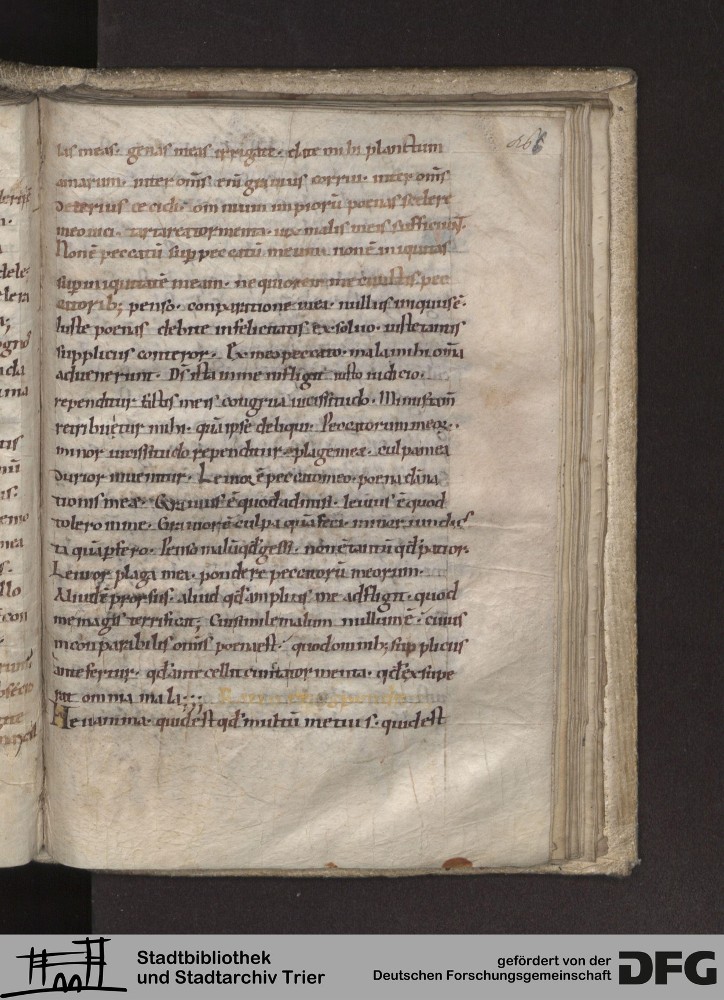 las meas. genas meas irrigate. date mihi planctum
amarum. inter om̅s eni̅ grauius corrui. inter om̅s
deterius cecidi. omnium impioru̅ poenas scelere
meo uici. tartarea tormenta uix malis meis sufficiunt.
Non e̅ peccatu̅ sup̲ peccatu̅ meum. non e̅ iniquitas
sup̲ iniquitate̅ meam. nequiorem me cunctis pec
catorib; penso. conparatione mea. nullus iniquus e̅.
Iuste poenas debite infelicitatis exsoluo. iustis tantis
suppliciis conteror. Ex meo peccato. mala mihi om̅ia
aduenerunt. Ds̅ ista in me infligit iusto iudicio.
rependitur factis meis congrua uicissitudo.
retribuetur mihi. qua̅ ipse deliqui. Peccatorum meoꝝ.
minor uicissitudo rependitur. plage meæ. culpa mea
durior inuenitur. Leuior e̅ peccato meo. poena da̅na
tionis meæ. Grauius e̅ quod admisi. leuius e̅ quod
tolero in me. Grauior e̅ culpa qua̅ feci. minor iundic
ta qua̅ p̲fero. Penso malu̅ qđ gessi. non e̅ tantu̅ qđ patior.
Leuior plaga mea. pondere peccatoru̅ meorum.
Aliud e̅ prorsus. aliud qđ amplius me adfligit. quod
me magis terrificat; Cui simile malum nullum e̅. cuius
inconparabilis om̅is poena est. quod omnib; suppliciis
antefertur. qđ antecellit cuncta tormenta. qđ exsupe
rat omnia mala;;;
Heu anima. quid est qđ multu̅ metuis. quid est
Stadtbibliothek
und Stadtarchiv Trier
gefördert von der
Deutschen Forschungsgemeinschaft
DFG